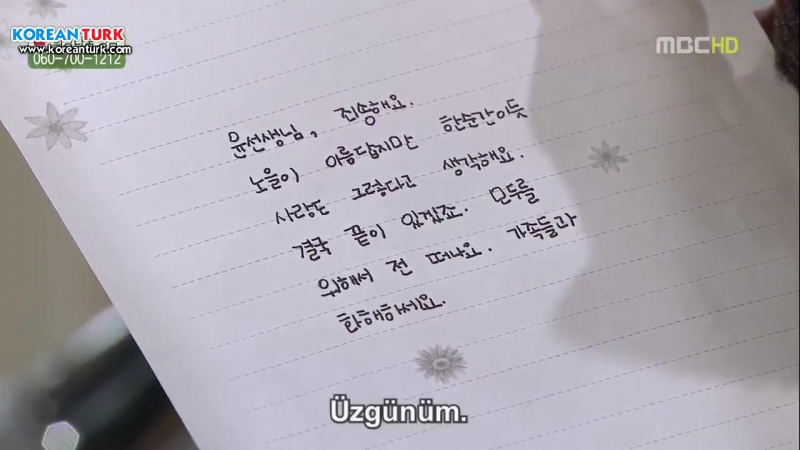 KOREAN TURK
www.koreanturk.com
060-700-1212
MBC HD
윤선생님, 죄송해요.
노을이 아름답지만 한순간이듯
사랑도 그렇다고 생각해요.
결국 끝이 있겠죠. 모두를
위해서 전 떠나요. 가족들과
화해하세요.
Üzgünüm.